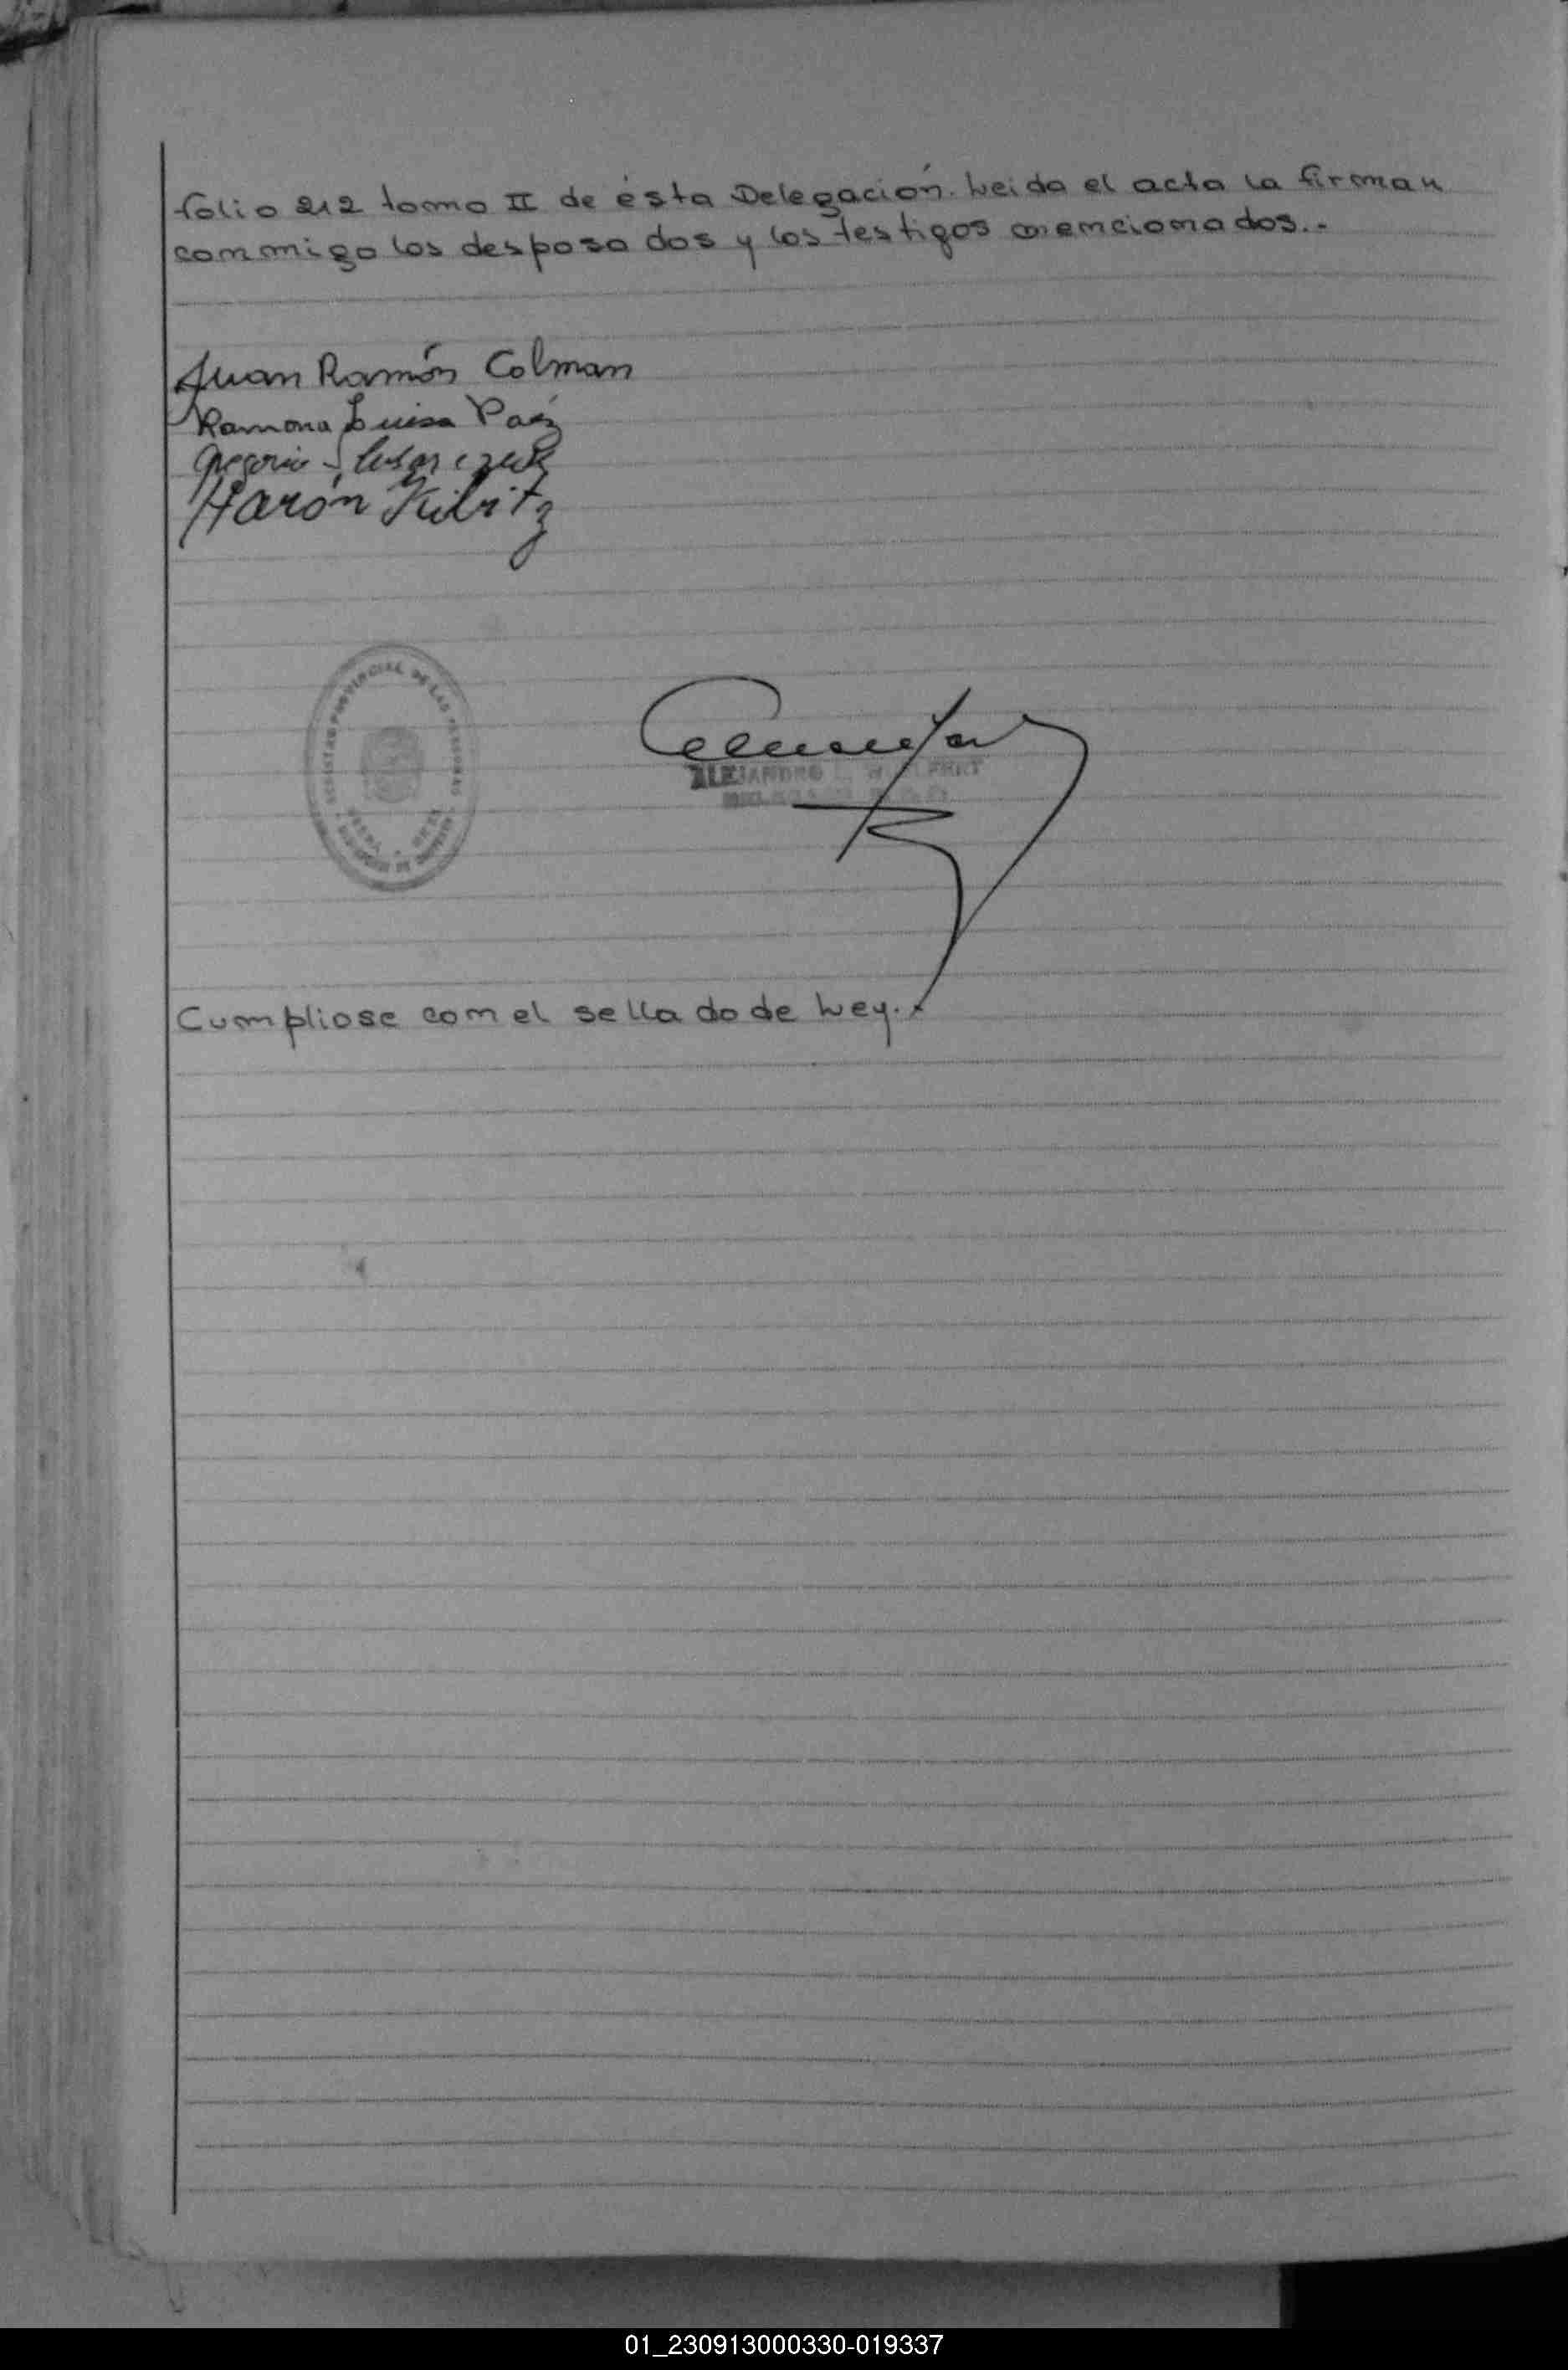 folio 212 tomo II de ésta Delegación. Leida el acta la firman
conmigo los desposados y los testigos mencionados..-
Juan Ramón Colman
Ramona Luisa Paéz
Gregorio
Harón Kibitz
REGISTRO PROVINCIAL DE LAS PERSONAS
ALEJANDRO L.
Cumpliose con el sellado de Ley.-
01_230913000330-019337